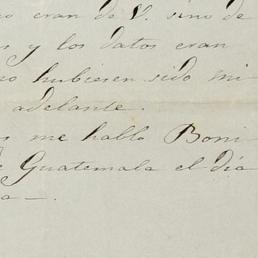 eran de V. sino de
y los datos eran
hubiesen sido mi
adelante.
me hablo Boni
Guatemala el día